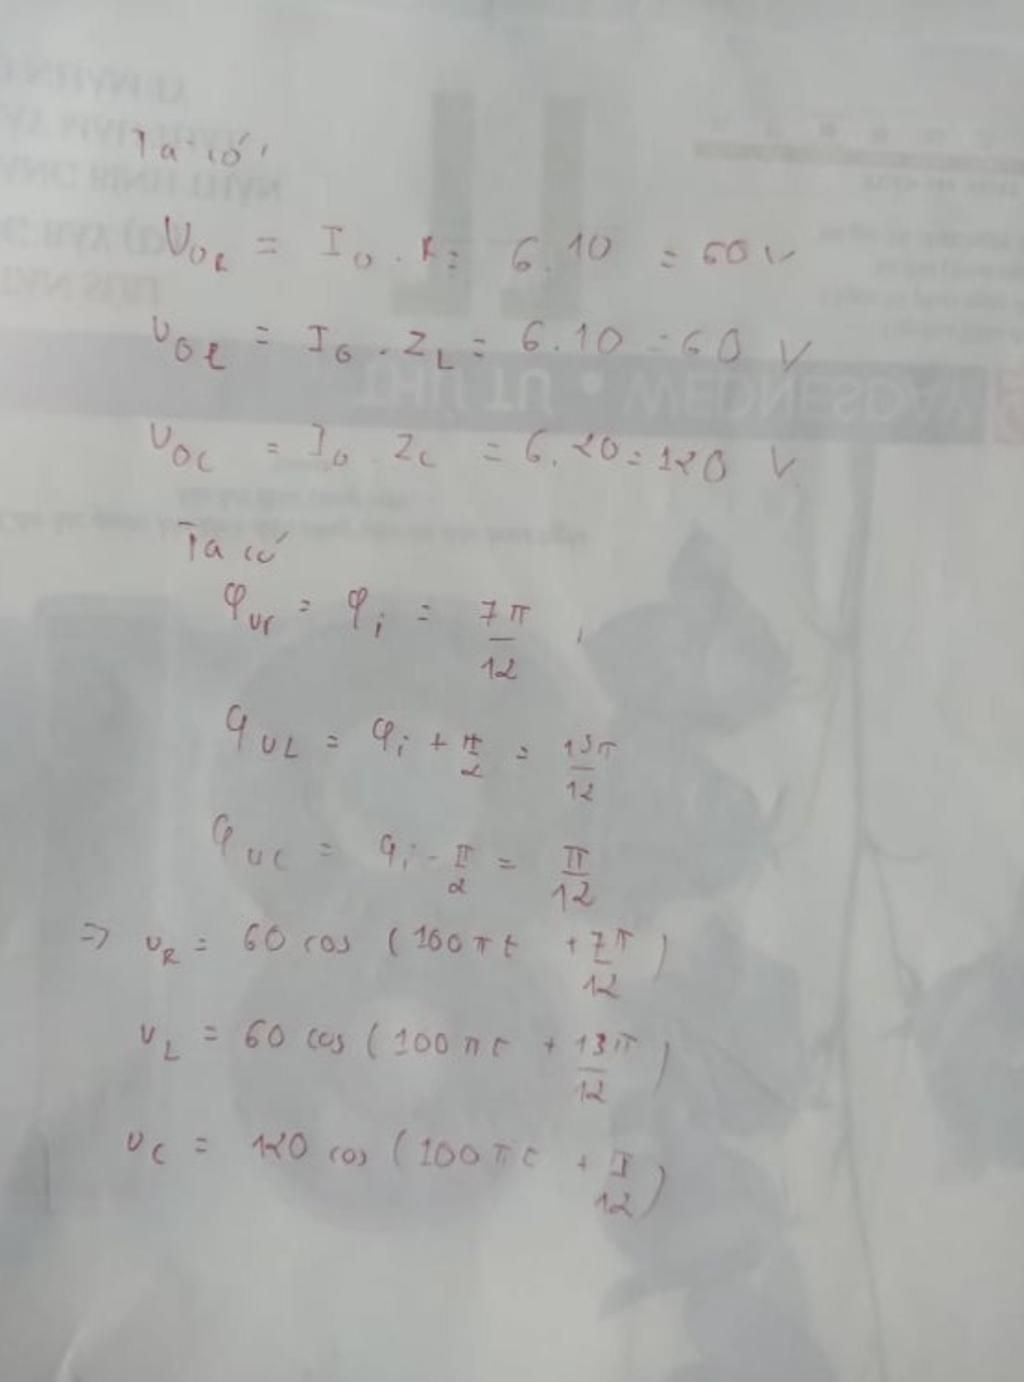 Ta có
U0R = I0 . R = 6.10 = 60 V
U0L = I0 . ZL = 6.10 = 60 V
U0C = I0 ZC = 6.20 = 120 V
Ta có
φur = φi = 7π/12
φUL = φi + π/2 = 13π/12
φUC = φi - π/2 = π/12
=> uR = 60 cos (100πt + 7π/12)
uL = 60 cos (100πt + 13π/12)
uC = 120 cos (100πt + π/12)
THỨ TƯ • WEDNESDAY